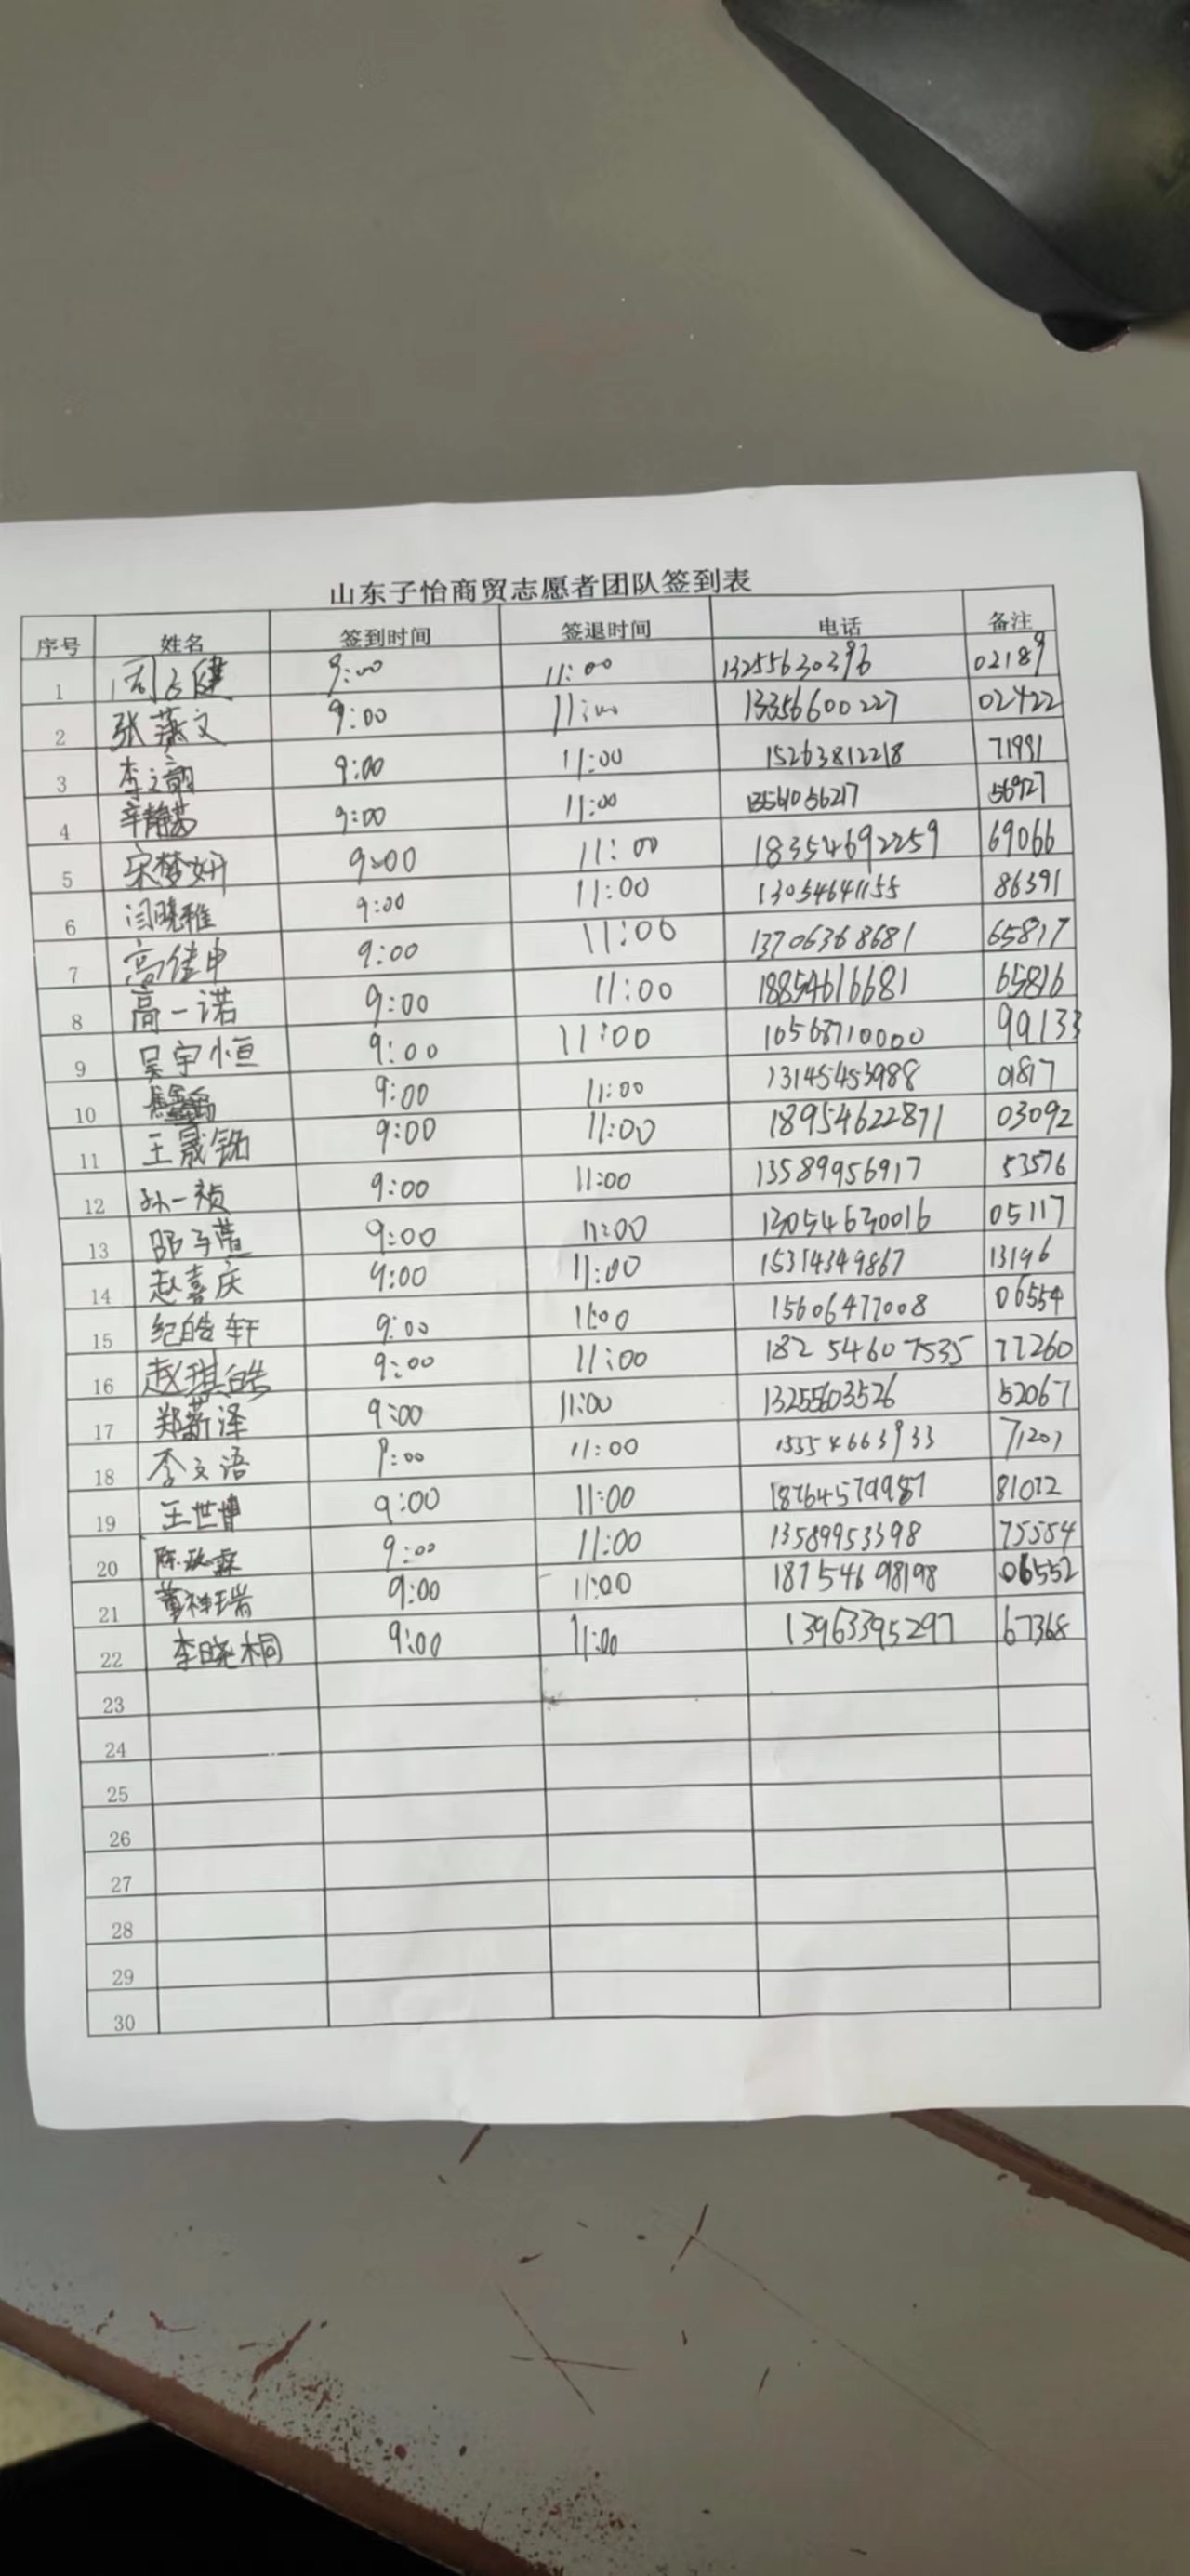 山东子怡商贸志愿者团队签到表
序号 姓名 签到时间 签退时间 电话 备注
1 9:00 11:00 13255630396 02189
2 张潇文 9:00 11:00 13356600227 02422
3 李文 9:00 11:00 15263812218 71991
4 辛静 9:00 11:00 13561056217 56927
5 宋梦妍 9:00 11:00 18354692259 69066
6 闫晓雅 9:00 11:00 13054641155 86391
7 高佳申 9:00 11:00 13706368681 65817
8 高一诺 9:00 11:00 18854616681 65816
9 吴宇恒 9:00 11:00 10568710000 99133
10 9:00 11:00 13145453988 01817
11 王晟铭 9:00 11:00 18954622871 03092
12 孙一祯 9:00 11:00 13589956917 53576
13 邵子萱 9:00 11:00 13054630016 05117
14 赵喜庆 9:00 11:00 15314349867 13196
15 纪皓轩 9:00 11:00 15606477008 06554
16 赵琪皓 9:00 11:00 182 5460 7535 77260
17 郑薪泽 9:00 11:00 13255603526 52067
18 李文语 9:00 11:00 15554663933 71201
19 王世博 9:00 11:00 18764579987 81072
20 陈玫霖 9:00 11:00 13589953398 75554
21 董祥瑞 9:00 11:00 187 546 98198 06552
22 李晓桐 9:00 11:00 13963395297 67368
23
24
25
26
27
28
29
30